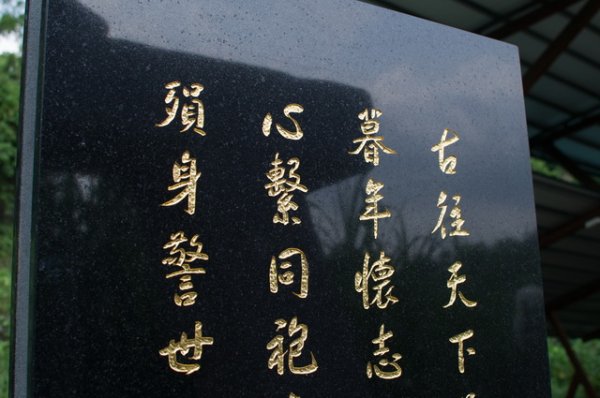 古往天下
暮年懷志
心繫同袍
殞身警世